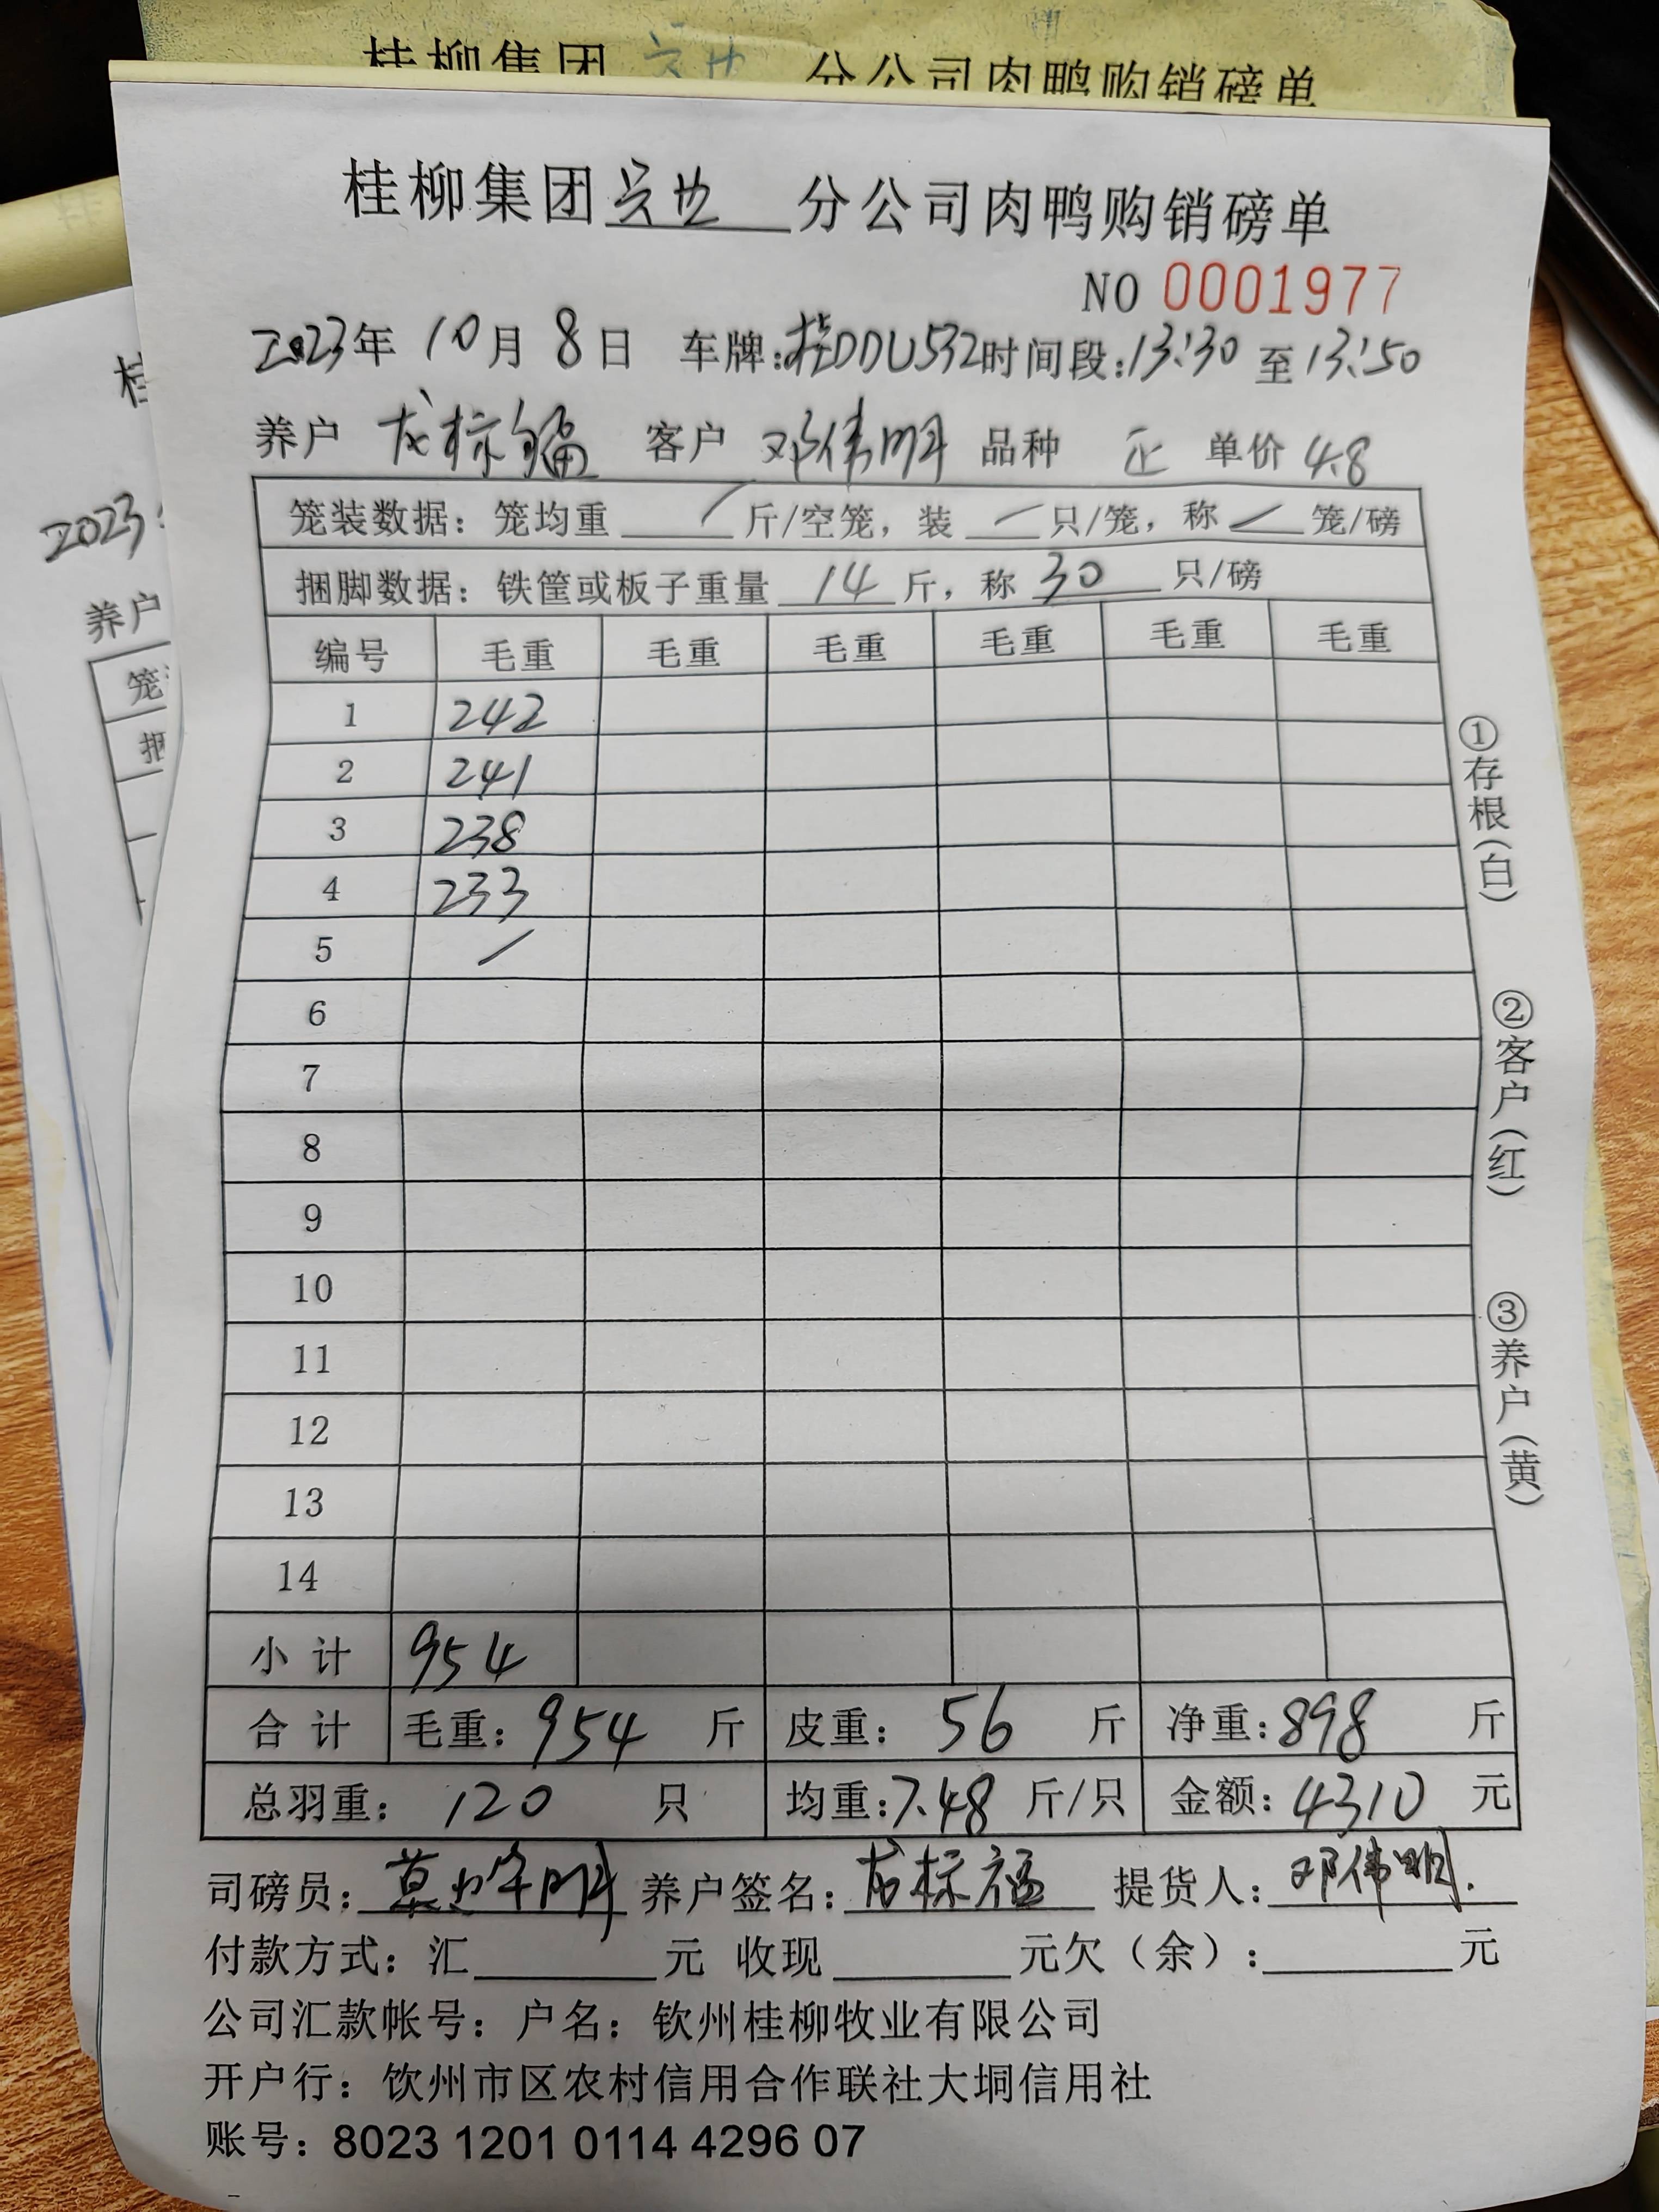 桂柳集团 分公司肉鸭购销磅单
桂柳集团 分公司肉鸭购销磅单
NO 0001977
2023年 10月 8日 车牌:桂DDU532 时间段:13:30 至 13:50
养户 龙标福 客户 邓伟明 品种 正 单价 4.8
笼装数据：笼均重 / 斤/空笼，装 / 只/笼，称 / 笼/磅
捆脚数据：铁筐或板子重量 14 斤，称 30 只/磅
编号 毛重 毛重 毛重 毛重 毛重 毛重
1 242
2 241
3 238
4 233
5 /
6
7
8
9
10
11
12
13
14
小计 954
合计 毛重：954 斤 皮重：56 斤 净重：898 斤
总羽重：120 只 均重：7.48 斤/只 金额：4310 元
司磅员： 养户签名：龙标福 提货人：邓伟明
付款方式：汇 元 收现 元欠（余）： 元
公司汇款帐号：户名：钦州桂柳牧业有限公司
开户行：饮州市区农村信用合作联社大垌信用社
账号：8023 1201 0114 4296 07
①存根（白）
②客户（红）
③养户（黄）
2023
养户